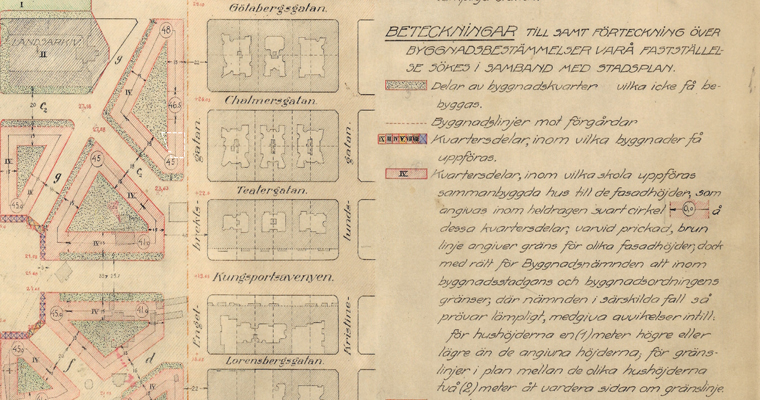 I
LANDSARKIV
II
Götabergsgatan.
Chalmersgatan.
gatan.
gatan.
Teatergatan.
brekts-
lunds-
Kungsportsavenyen.
Engel-
Kristine-
Lorensbergsgatan.
22
48
46
45
45
45
IV
IV
IV
IV
g
g
f
d
BETECKNINGAR TILL SAMT FÖRTECKNING ÖVER
BYGGNADSBESTÄMMELSER VARÅ FASTSTÄLLEL-
SE SÖKES I SAMBAND MED STADSPLAN.
Delar av byggnadskvarter vilka icke få be-
byggas.
Byggnadslinjer mot förgårdar
Kvartersdelar, inom vilka byggnader få
uppföras.
IV. Kvartersdelar, inom vilka skola uppföras
sammanbyggda hus till de fasadhöjder, som
angivas inom heldragen svart cirkel 0,0 å
dessa kvartersdelar, varvid prickad, brun
linje angiver gräns för olika fasadhöjder, dock
med rätt för Byggnadsnämnden att inom
byggnadsstadgans och byggnadsordningens
gränser, där nämnden i särskilda fall så
prövar lämpligt, medgiva avvikelser intill:
för hushöjderna en (1) meter högre eller
lägre än de angivna höjderna; för gräns-
linjer i plan mellan de olika hushöjderna
två (2) meter åt vardera sidan om gränslinje.